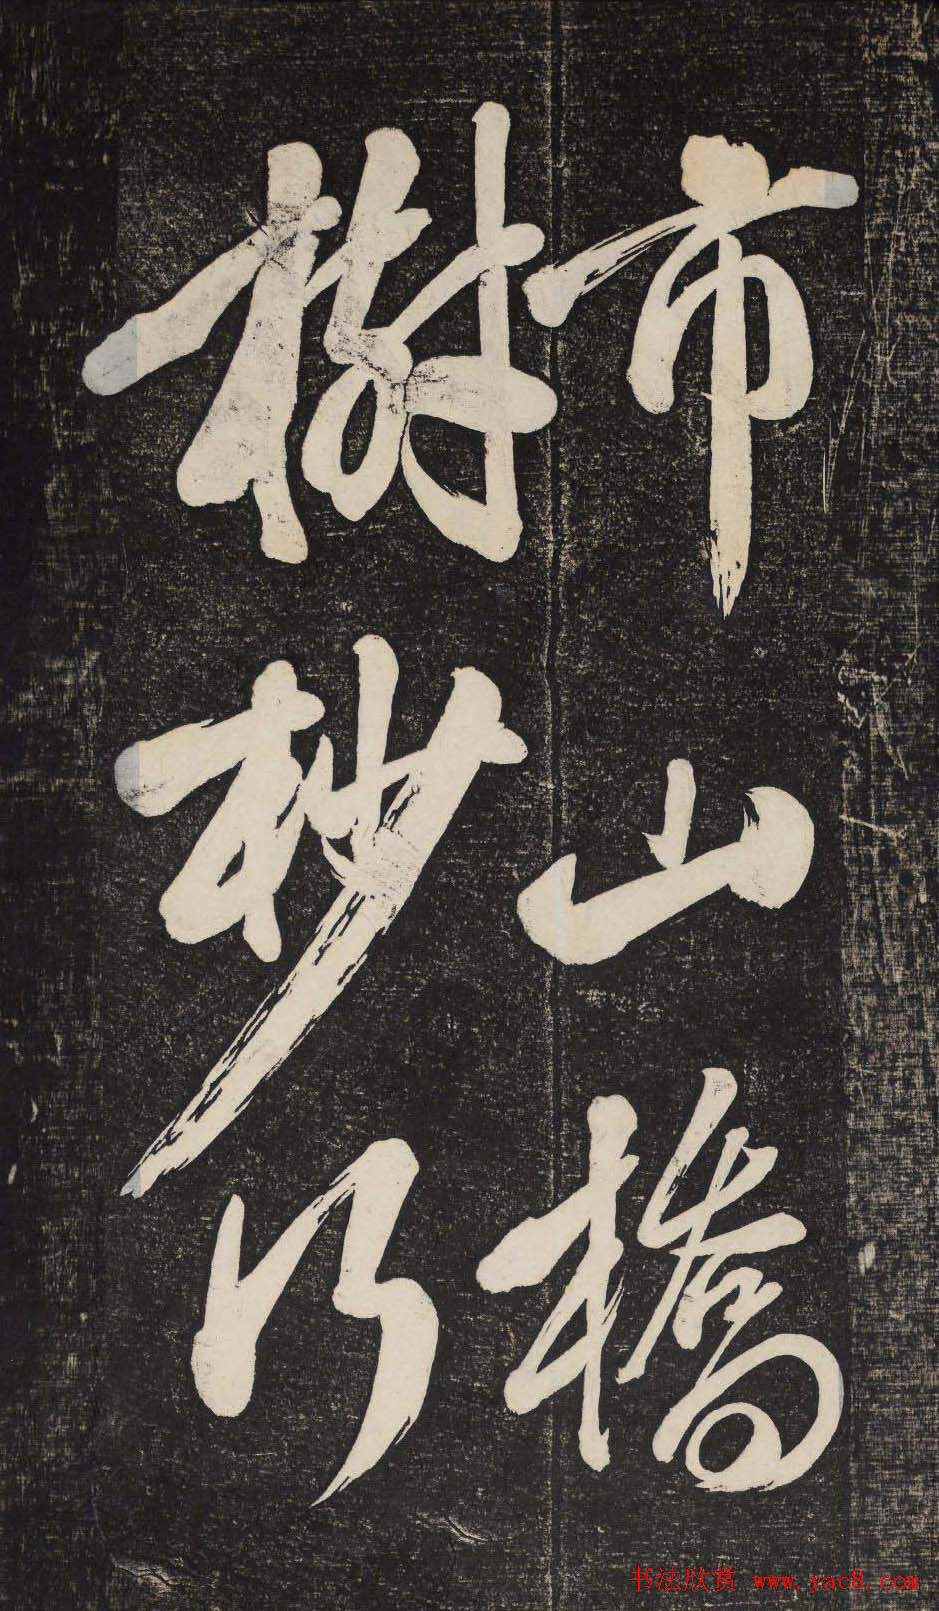 市山橋
樹杪行
书法欣赏 www.yac8.com